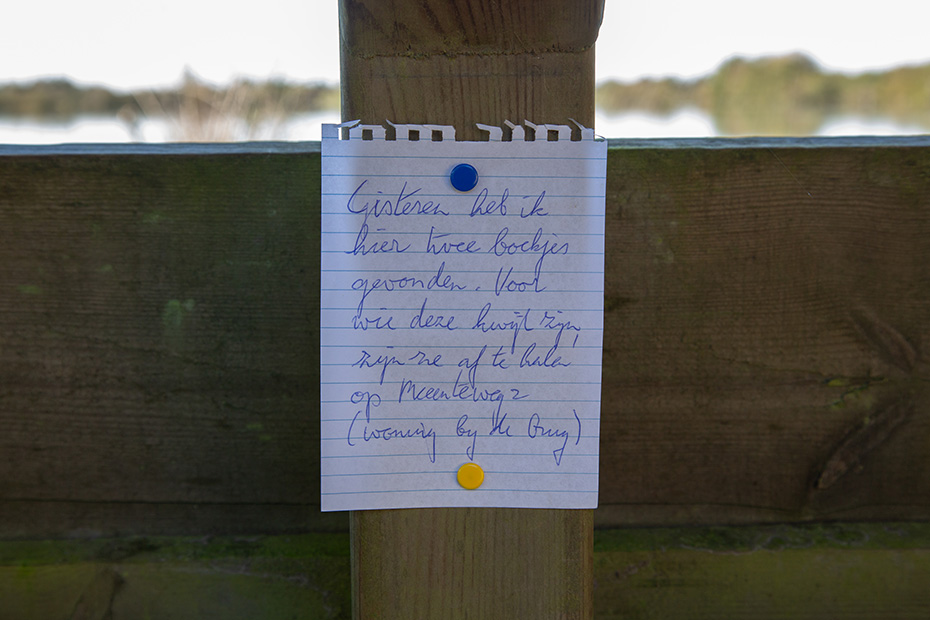 Gisteren heb ik
hier twee boekjes
gevonden. Voor
wie deze kwijt zijn,
zijn ze af te halen
op Meenteweg 2
(woning by de brug)